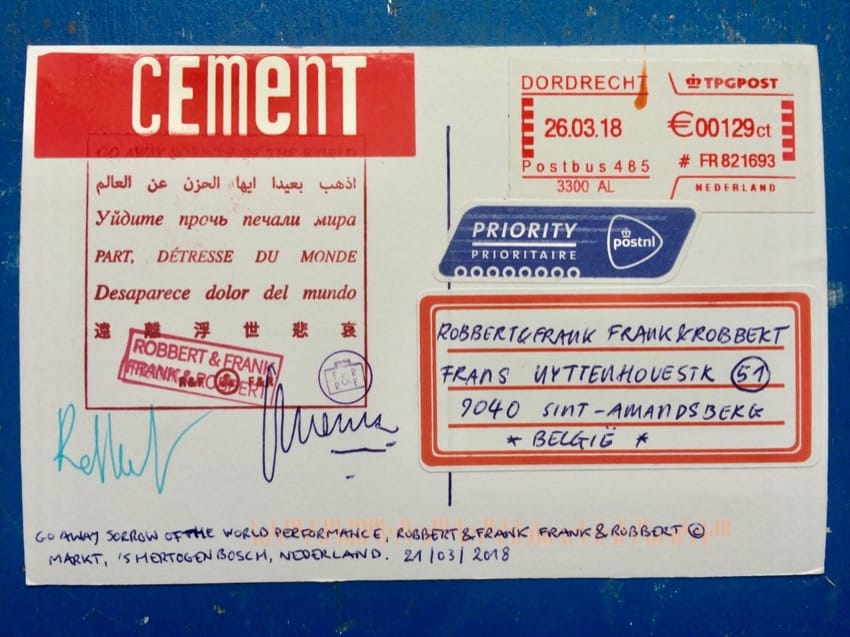 CEMENT
GO AWAY SORROW OF THE WORLD
اذهب بعيدا ايها الحزن عن العالم
Уйдите прочь печали мира
PART, DÉTRESSE DU MONDE
Desaparece dolor del mundo
遠離浮世悲哀
ROBBERT & FRANK
FRANK & ROBBERT
R&F F&R
F&R
R&F
DORDRECHT
TPGPOST
26.03.18
€00129ct
Postbus 485
# FR 821693
3300 AL
NEDERLAND
PRIORITY
PRIORITAIRE
postnl
ROBBERT&FRANK FRANK&ROBBERT
FRANS UYTTENHOVESTR 51
9040 SINT-AMANDSBERG
* BELGIË *
GO AWAY SORROW OF THE WORLD PERFORMANCE, ROBBERT&FRANK FRANK&ROBBERT ©
MARKT, 'S HERTOGENBOSCH, NEDERLAND. 21/03/2018